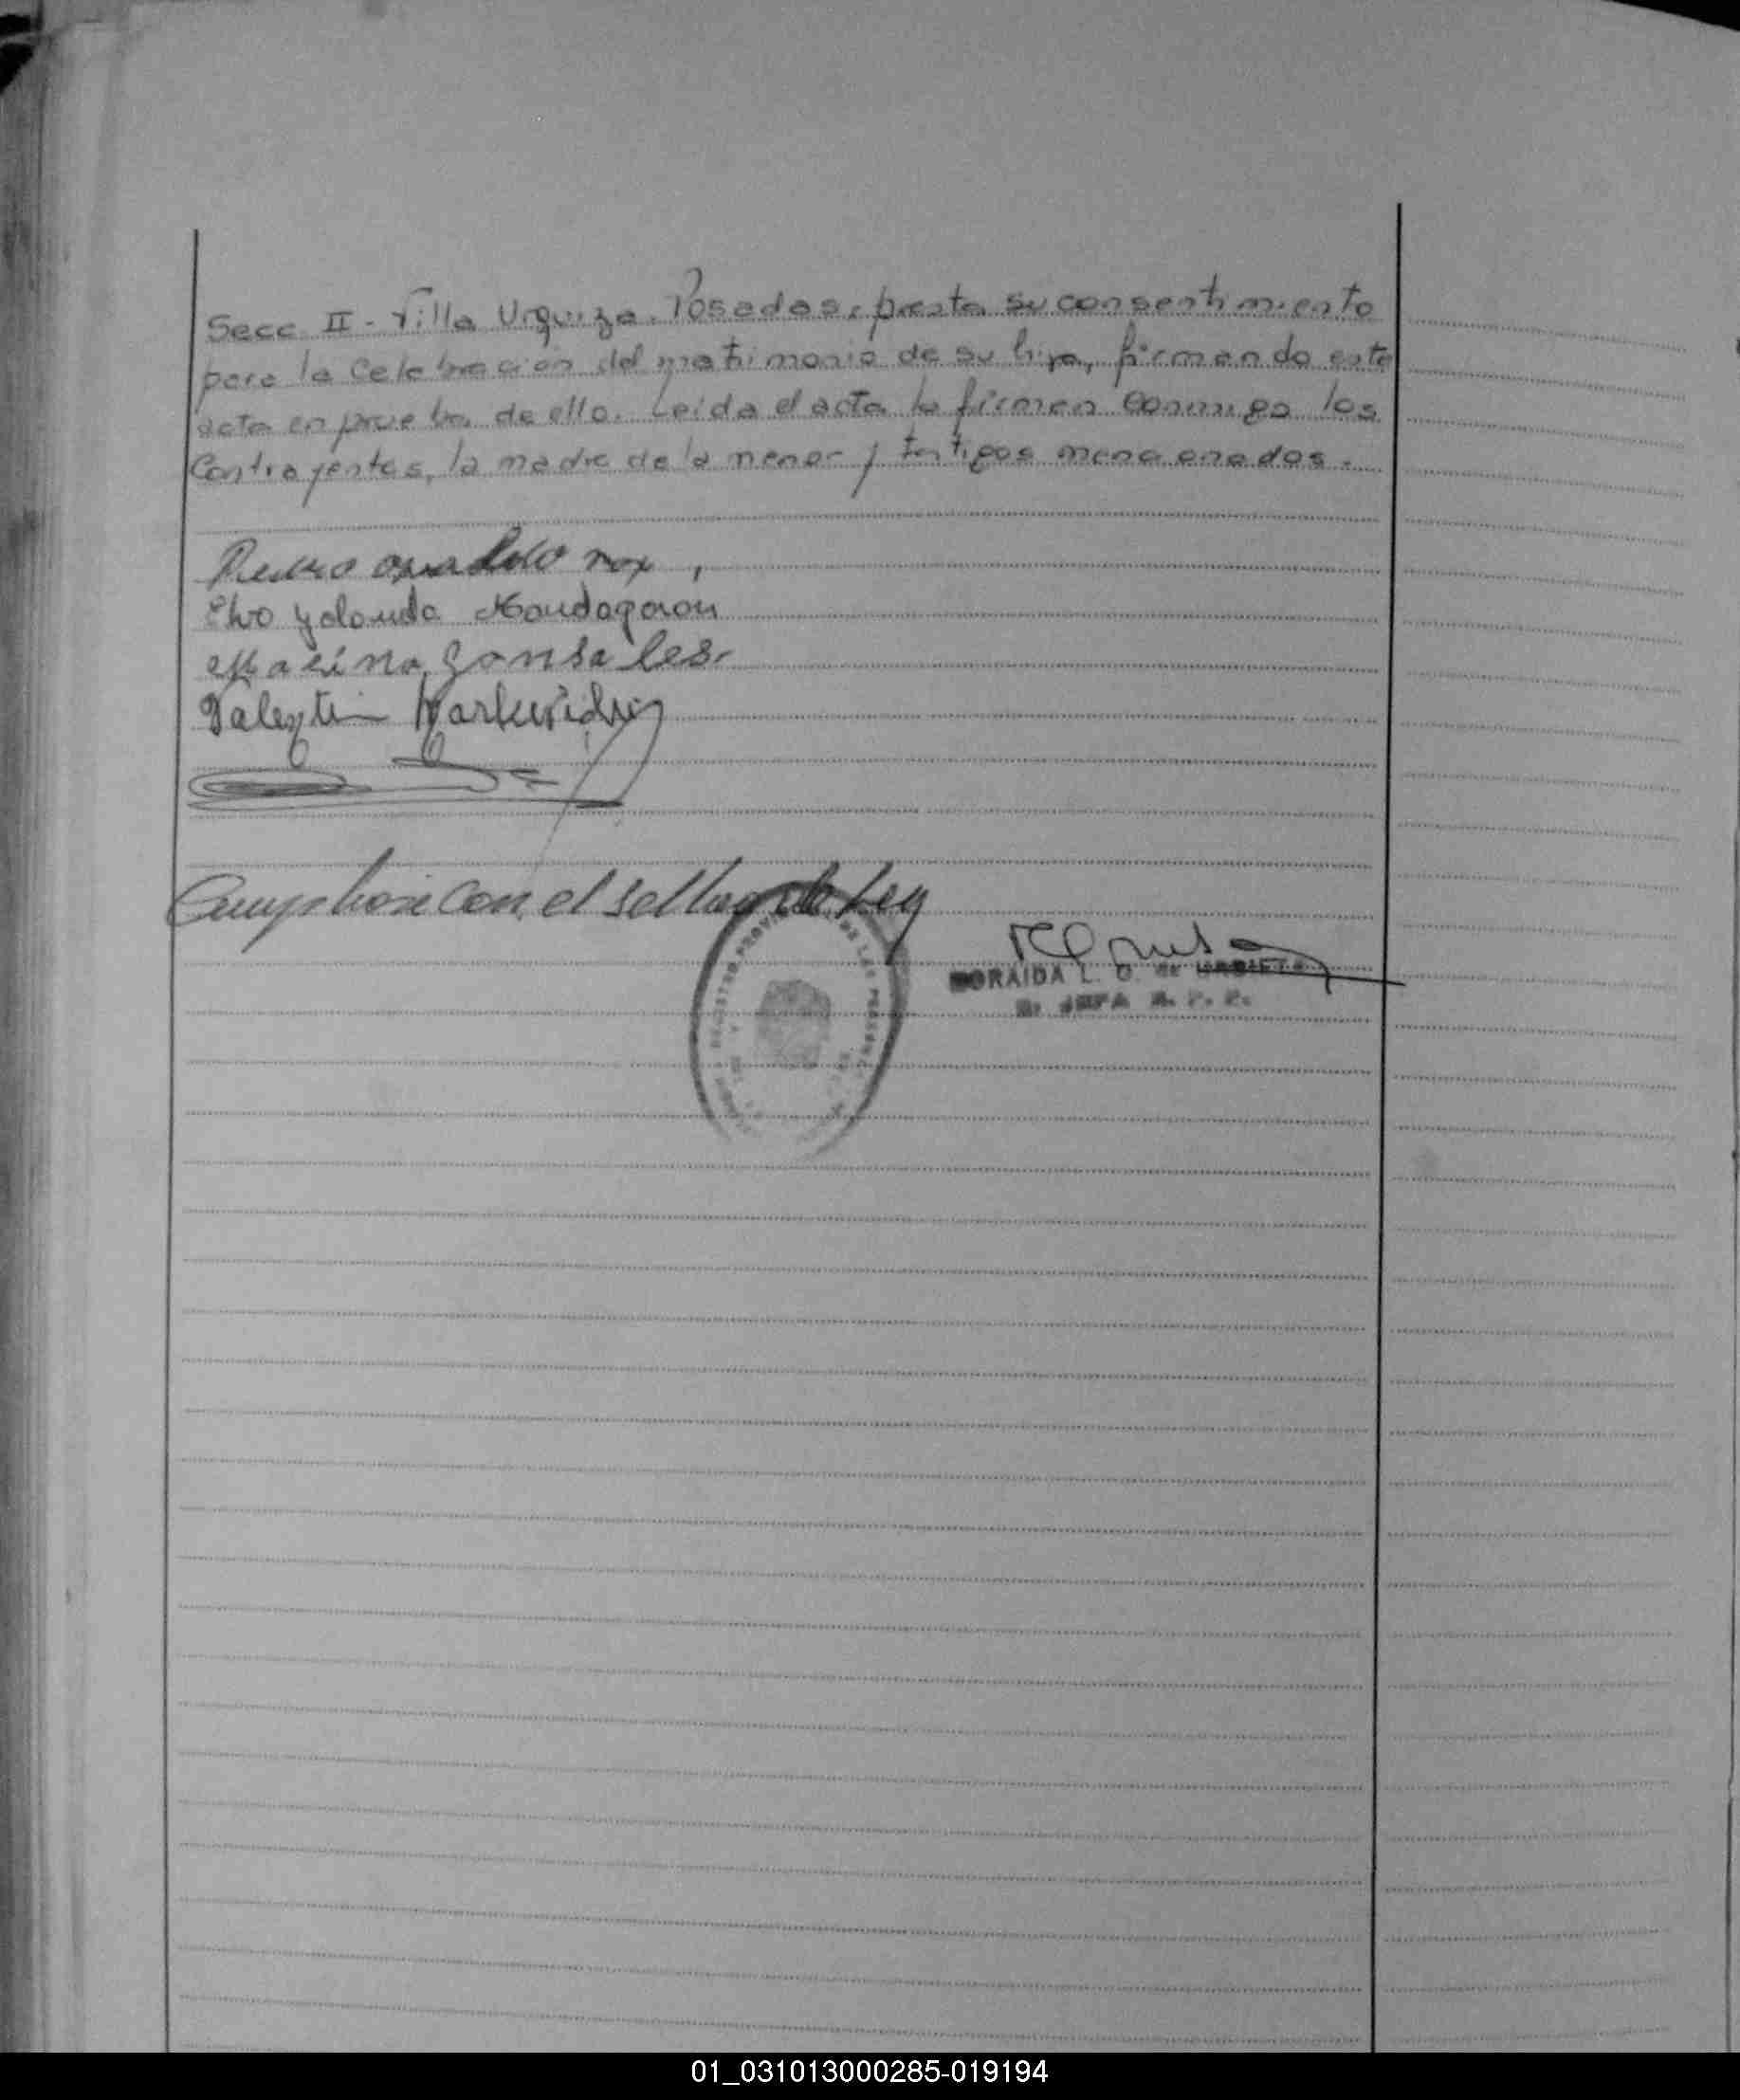 Secc. II - Villa Urquiza. Posadas, presta su consentimiento
para la celebracion del matrimonio de su hija, firmando este
acta en prueba de ello. Leida el acta la firman conmigo los
Contrayentes, la madre de la menor y testigos mencionados.
Pedro
Yolanda Mondagaron
Marina Gonsales.
Valentin
Cumpliose con el sellado de Ley
L. O. de
JEFA R. P. P.
REGISTRO PROV DE LAS PERSONAS
01_031013000285-019194